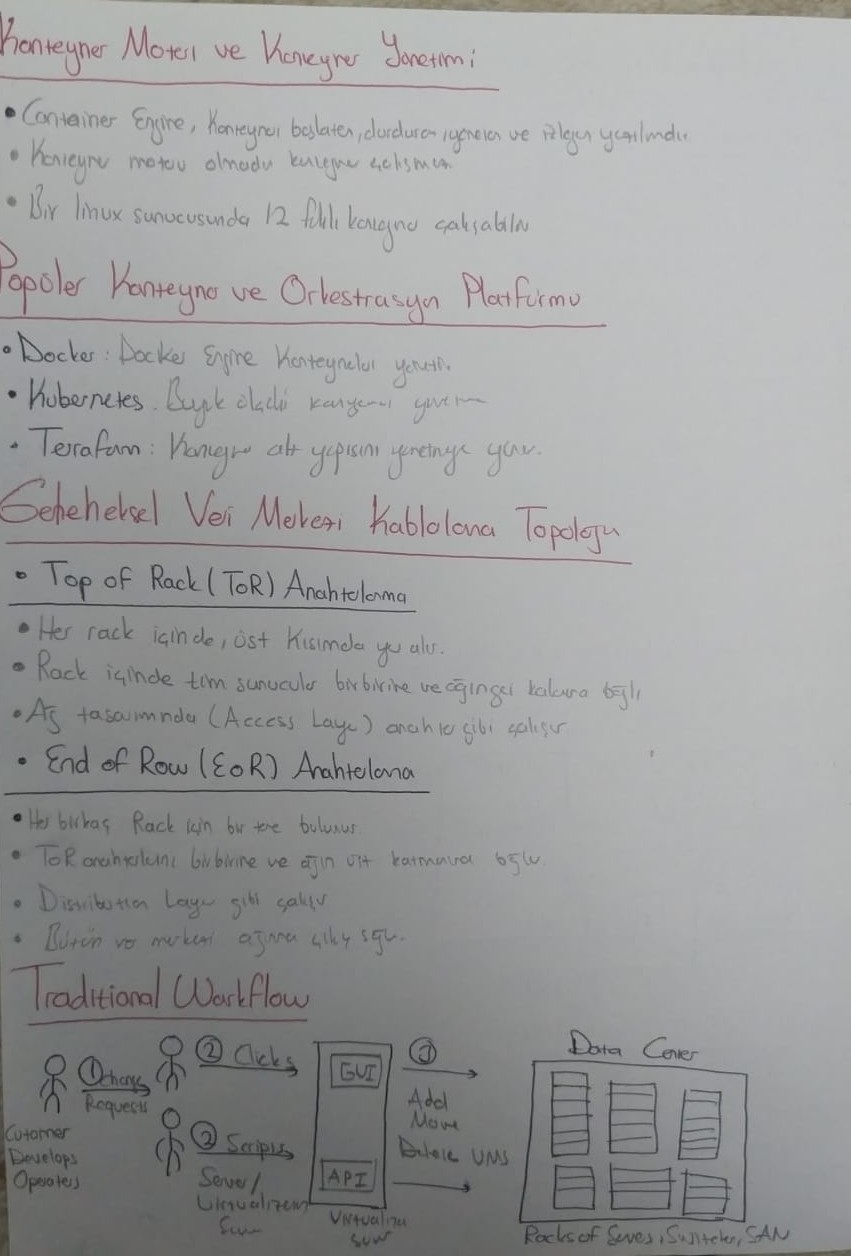 Konteyner Motoru ve Konteyner Yönetimi
• Container Engine, Konteynerı başlatan, durduran, yöneten ve izleyen yazılımdır
• Konteyner motoru olmadan konteyner çalışmaz
• Bir linux sunucusunda 12 farklı konteyner çalışabilir
Popüler Konteyner ve Orkestrasyon Platformu
• Docker: Docker Engine Konteynerları yönetir.
• Kubernetes. Büyük ölçekli
• Terraform: Konteyner alt yapısını yönetmeye yarar.
Geleneksel Veri Merkezi Kablolama Topolojisi
• Top of Rack (ToR) Anahtarlama
• Her rack içinde, üst Kısımda yer alır.
• Rack içinde tüm sunucular birbirine ve ağın geri kalanına bağlı
• Ağ tasarımında (Access Layer) anahtar gibi çalışır
• End of Row (EoR) Anahtarlama
• Her birkaç Rack için bir tane bulunur
• ToR anahtarlarını birbirine ve ağın üst katmanına bağlar.
• Distribution Layer gibi çalışır
• Bütün veri merkezi ağına çıkış sağlar.
Traditional Workflow
Data Center
① Change Requests
② Clicks
GUI
③
Add
Move
Delete VMS
② Scripts
API
Customer
Develops
Operators
Server/
Virtualizem
Virtualiza
Racks of Serves, Switches, SAN